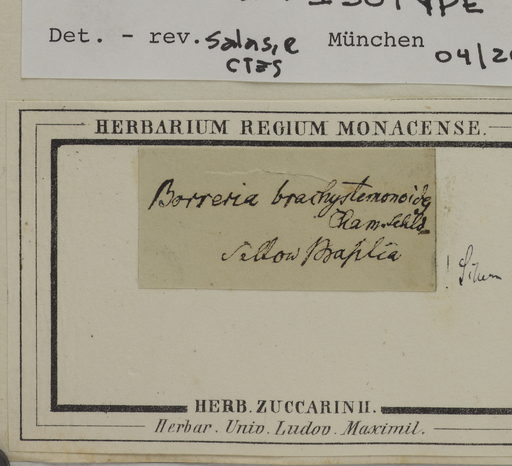 ISOTYPE
Det. - rev. Salas, e
CTES
München 04/20
HERBARIUM REGIUM MONACENSE.
Borreria brachystemonoides
Cham. Schltd
Sellow Brasilia
!
HERB. ZUCCARINII.
Herbar. Univ. Ludov. Maximil.